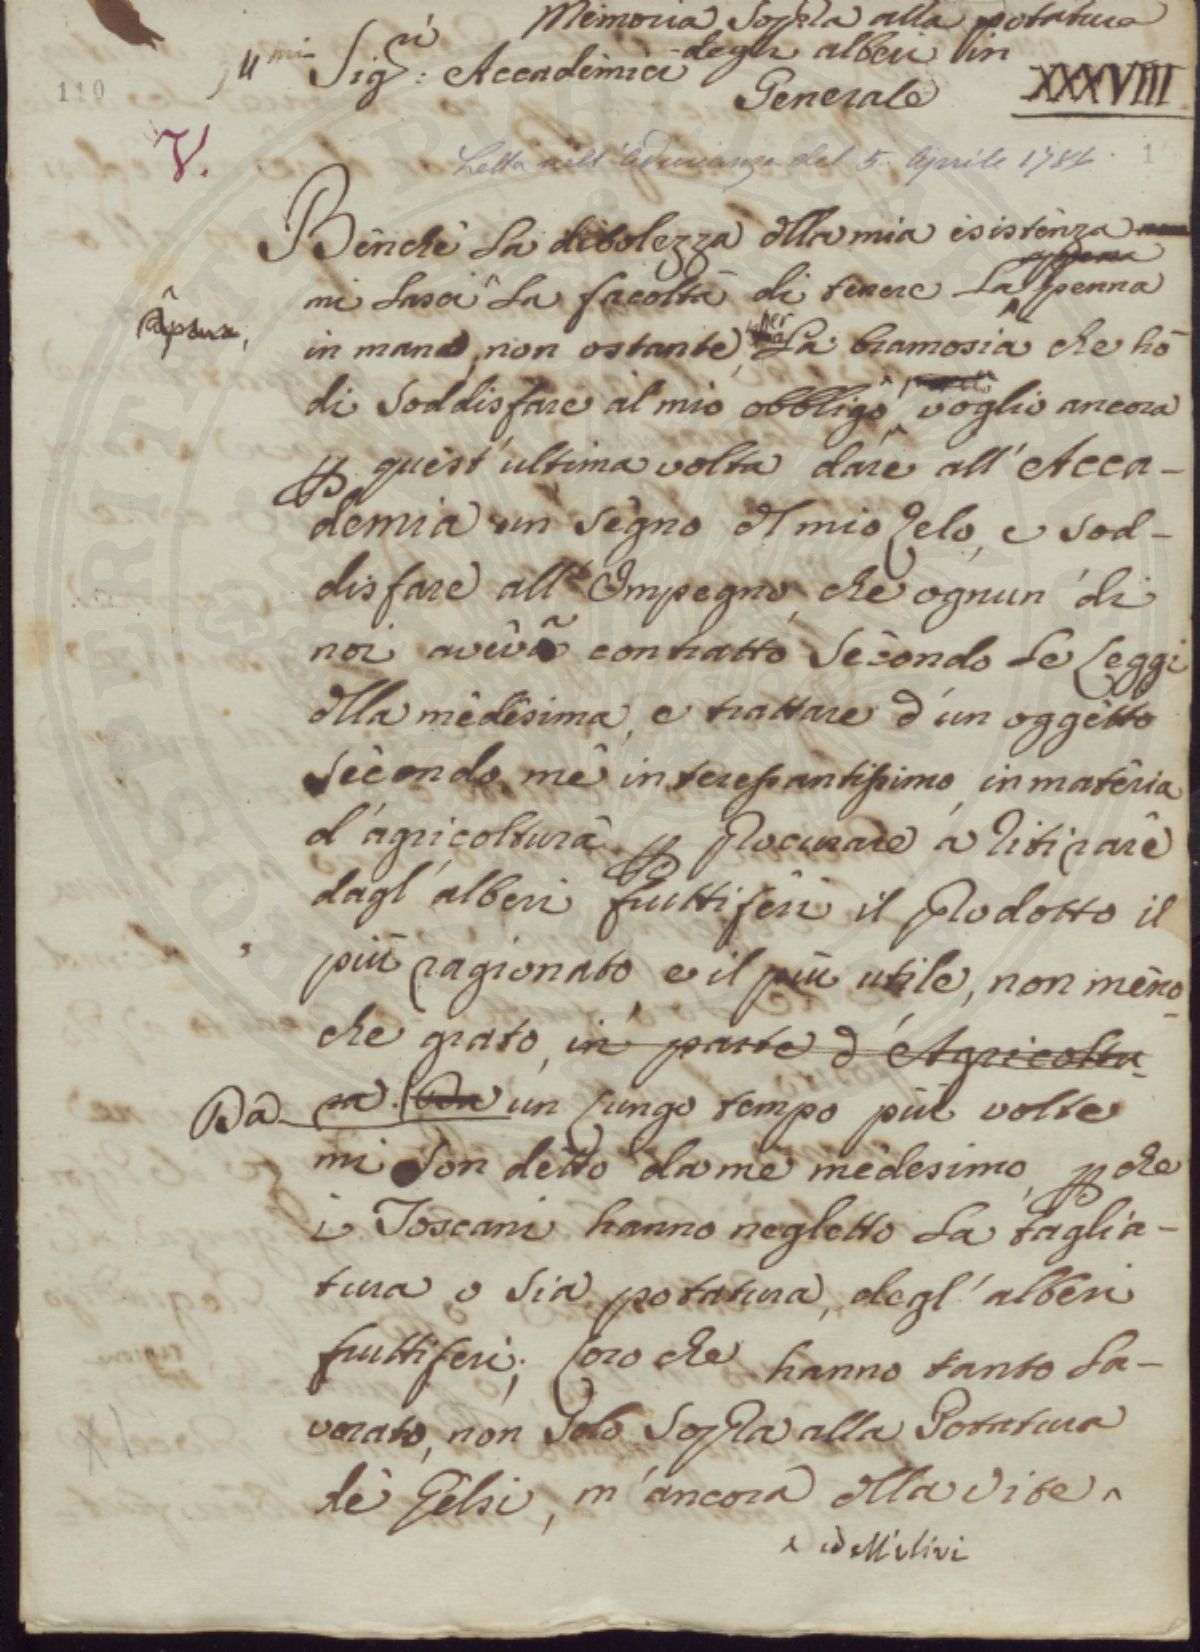 Memoria Sopra alla potatura
degli alberi in
Generale
Sig:ri Accademici
XXXVIII
110
V.
Letta nell'Adunanza del 5. Aprile 1786
1
Benchè La debolezza della mia esistenza
appena
mi Lasci La facoltà di tenere La penna
in mano, non ostante, per La bramosia che hò
di Soddisfare al mio obbligo voglio ancora
p quest'ultima volta dare all'Acca-
demia un Segno del mio Zelo, e Sod-
disfare all'Impegno, che ognun' di
noi aveva contratto Secondo Le Leggi
della medesima, e trattare d'un oggetto
Secondo me interessantissimo, in materia
d'agricoltura p Procurare a Ritirare
dagl'alberi fruttiferi il Prodotto il
più ragionato, e il più utile, non meno
che grato, in parte d'Agricoltu-
ra.
Da un Lungo tempo più volte
mi Son detto da me medesimo, pche
i Toscani hanno negletto La taglia-
tura o Sia potatura, degl'alberi
fruttiferi; Loro che hanno tanto La-
vorato, non Solo Sopra alla Potatura
de Gelsi, m'ancora della Vite ^
^ e dell'ulivi